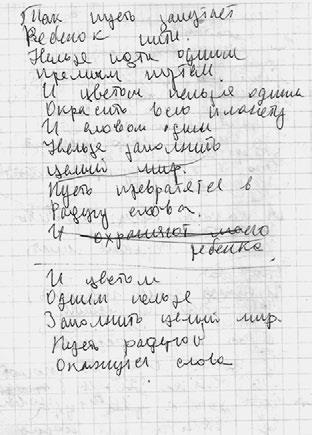 Так пусть запутает
Ребенок нити.
Нельзя идти одним
Прямым путем.
И цветом нельзя одним
Окрасить всю планету
И словом одним
Нельзя заполнить
целый мир.
Пусть превратятся в
Радугу слова.
И охраняют моего
ребенка.
И цветом
Одним нельзя
Заполнить целый мир.
Пусть радугой
Окажутся слова